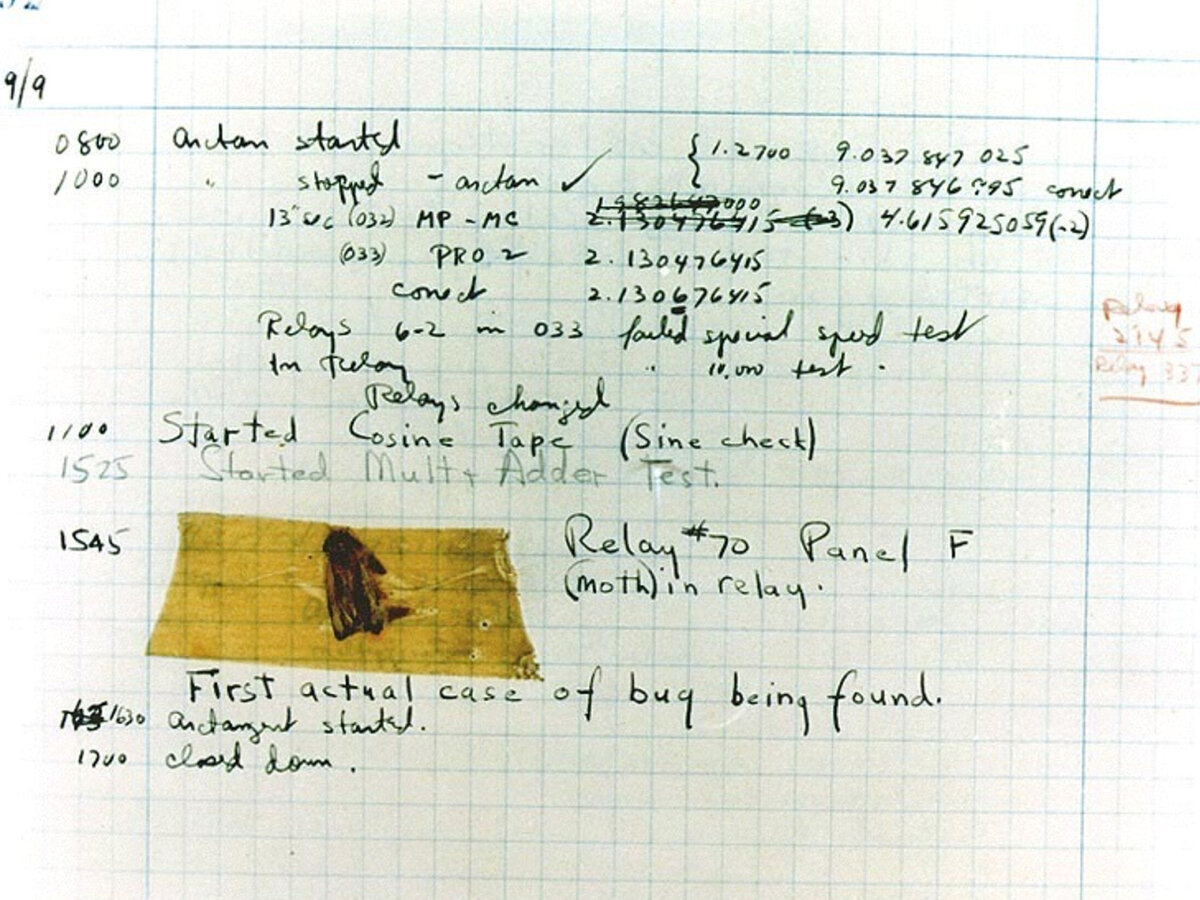 9/9
0800 arctan started { 1.2700 9.037 847 025
1000 " stopped - arctan ✓ 9.037 846 995 conect
13" uc (032) MP - MC 2.130476415 (-3) 4.615925059(-2)
(033) PRO 2 2.130476415
conect 2.130676415
Relays 6-2 in 033 failed special speed test
In Relay " 10,000 test .
Relays changed
Relay
2145
Relay 337
1100 Started Cosine Tape (Sine check)
1525 Started Mult + Adder Test.
1545 Relay #70 Panel F
(moth) in relay.
First actual case of bug being found.
1630 arctangent started.
1700 closed down.